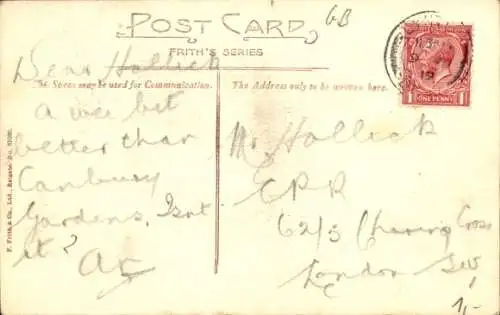 POST CARD
FRITH'S SERIES
GB
The Space may be used for Communication.
The Address only to be written here.
Dear Hollick
A wee bit
better than
Canbury
Gardens, Isnt
it?
Mr Hollick
CPR
62/5 Charing Cross
London SW
1,-
ONE PENNY
1
1
F. Frith & Co., Ltd., Reigate.